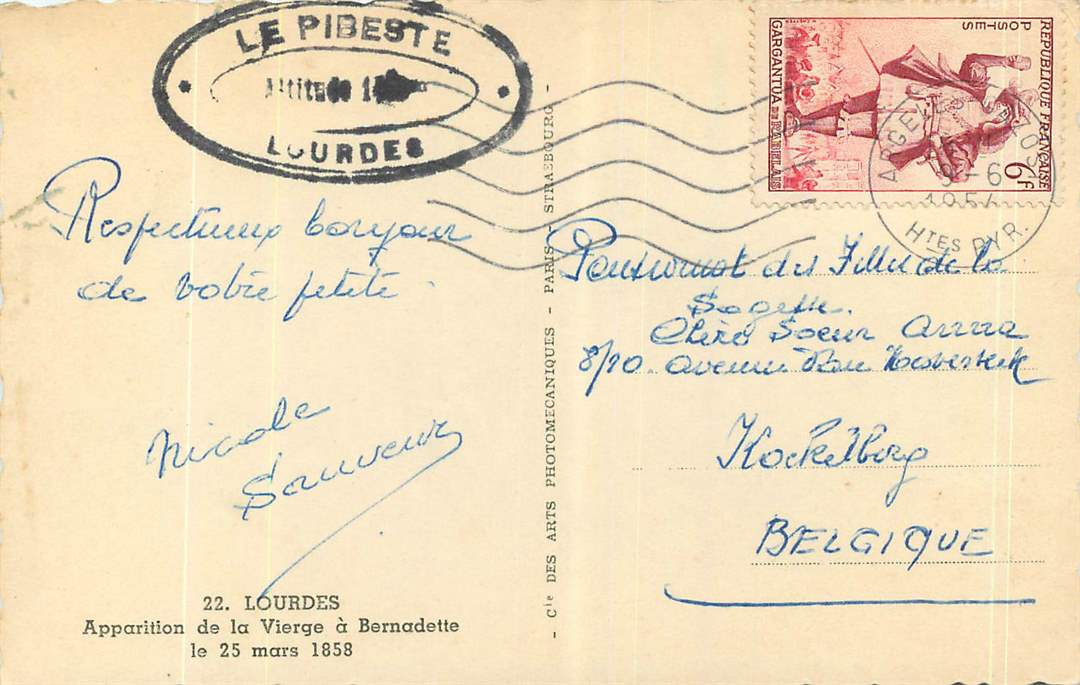 LE PIBESTE
Altitude
LOURDES
REPUBLIQUE FRANÇAISE
POSTES
GARGANTUA DE RABELAIS
6f
9-6
1954
HTES PYR.
Respectueux bonjour
de votre petite
Nicole
Sauveur
22. LOURDES
Apparition de la Vierge à Bernadette
le 25 mars 1858
- Cie DES ARTS PHOTOMECANIQUES - PARIS - STRASBOURG -
Pensionnat des Filles de la
Sagesse.
Chère Soeur Anna
8/20. avenue
Koekelberg
BELGIQUE